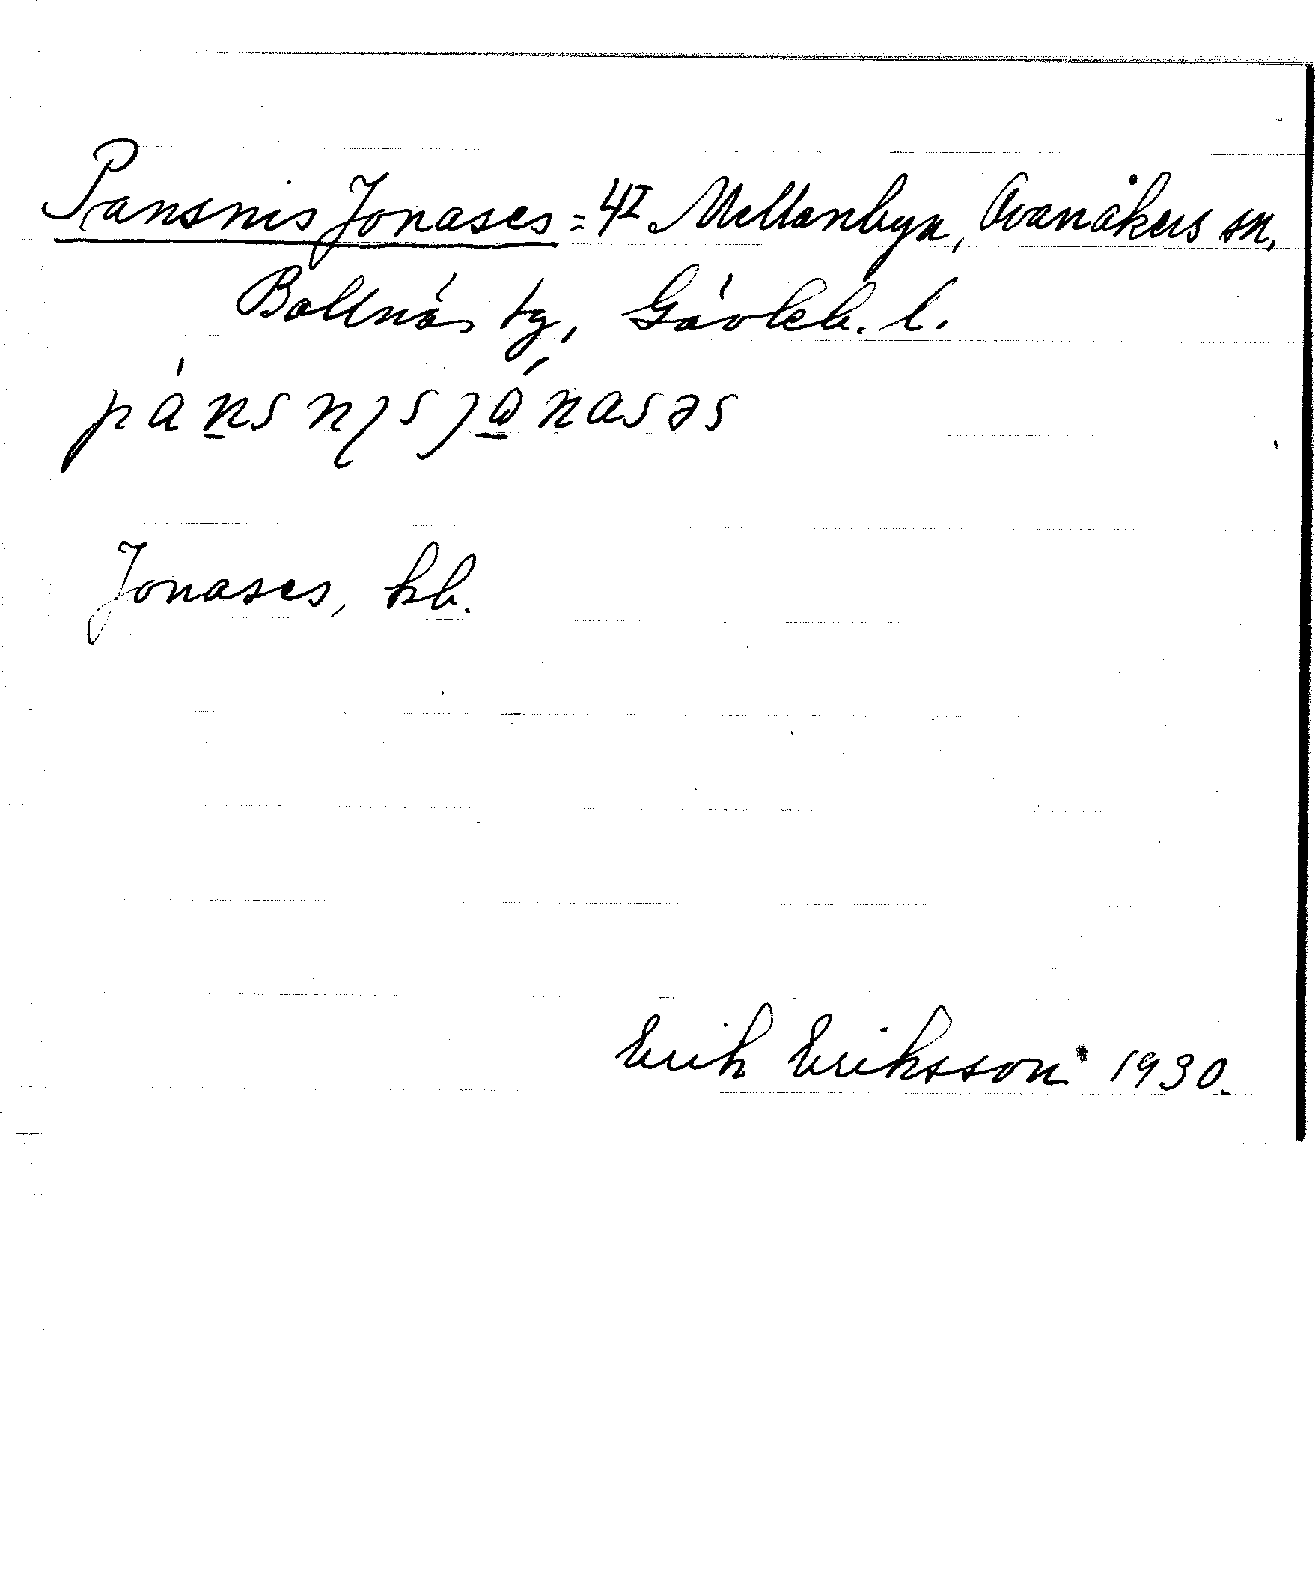 Pansnis Jonases = 4I Mellanbyn, Ovanåkers sn,
Bollnäs tg, Gävleb. l.
pánsnısȷónasəs
Jonases, kb.
Erik Eriksson 1930.